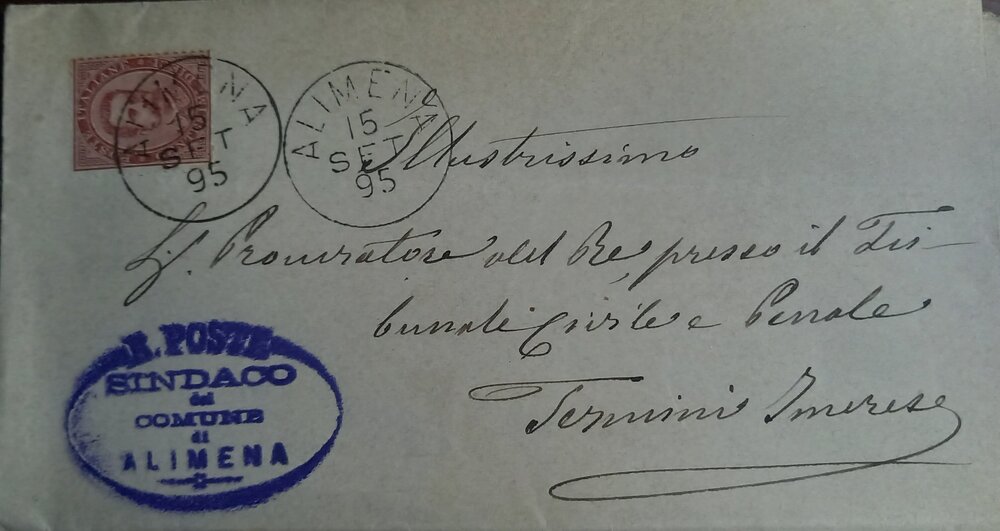 ALIMENA
15
SET
95
ALIMENA
15
SET
95
Illustrissimo
Sig. Procuratore del Re, presso il Tri-
bunale Civile e Penale
Termini Imerese
R. POSTE
SINDACO
del
COMUNE
di
ALIMENA